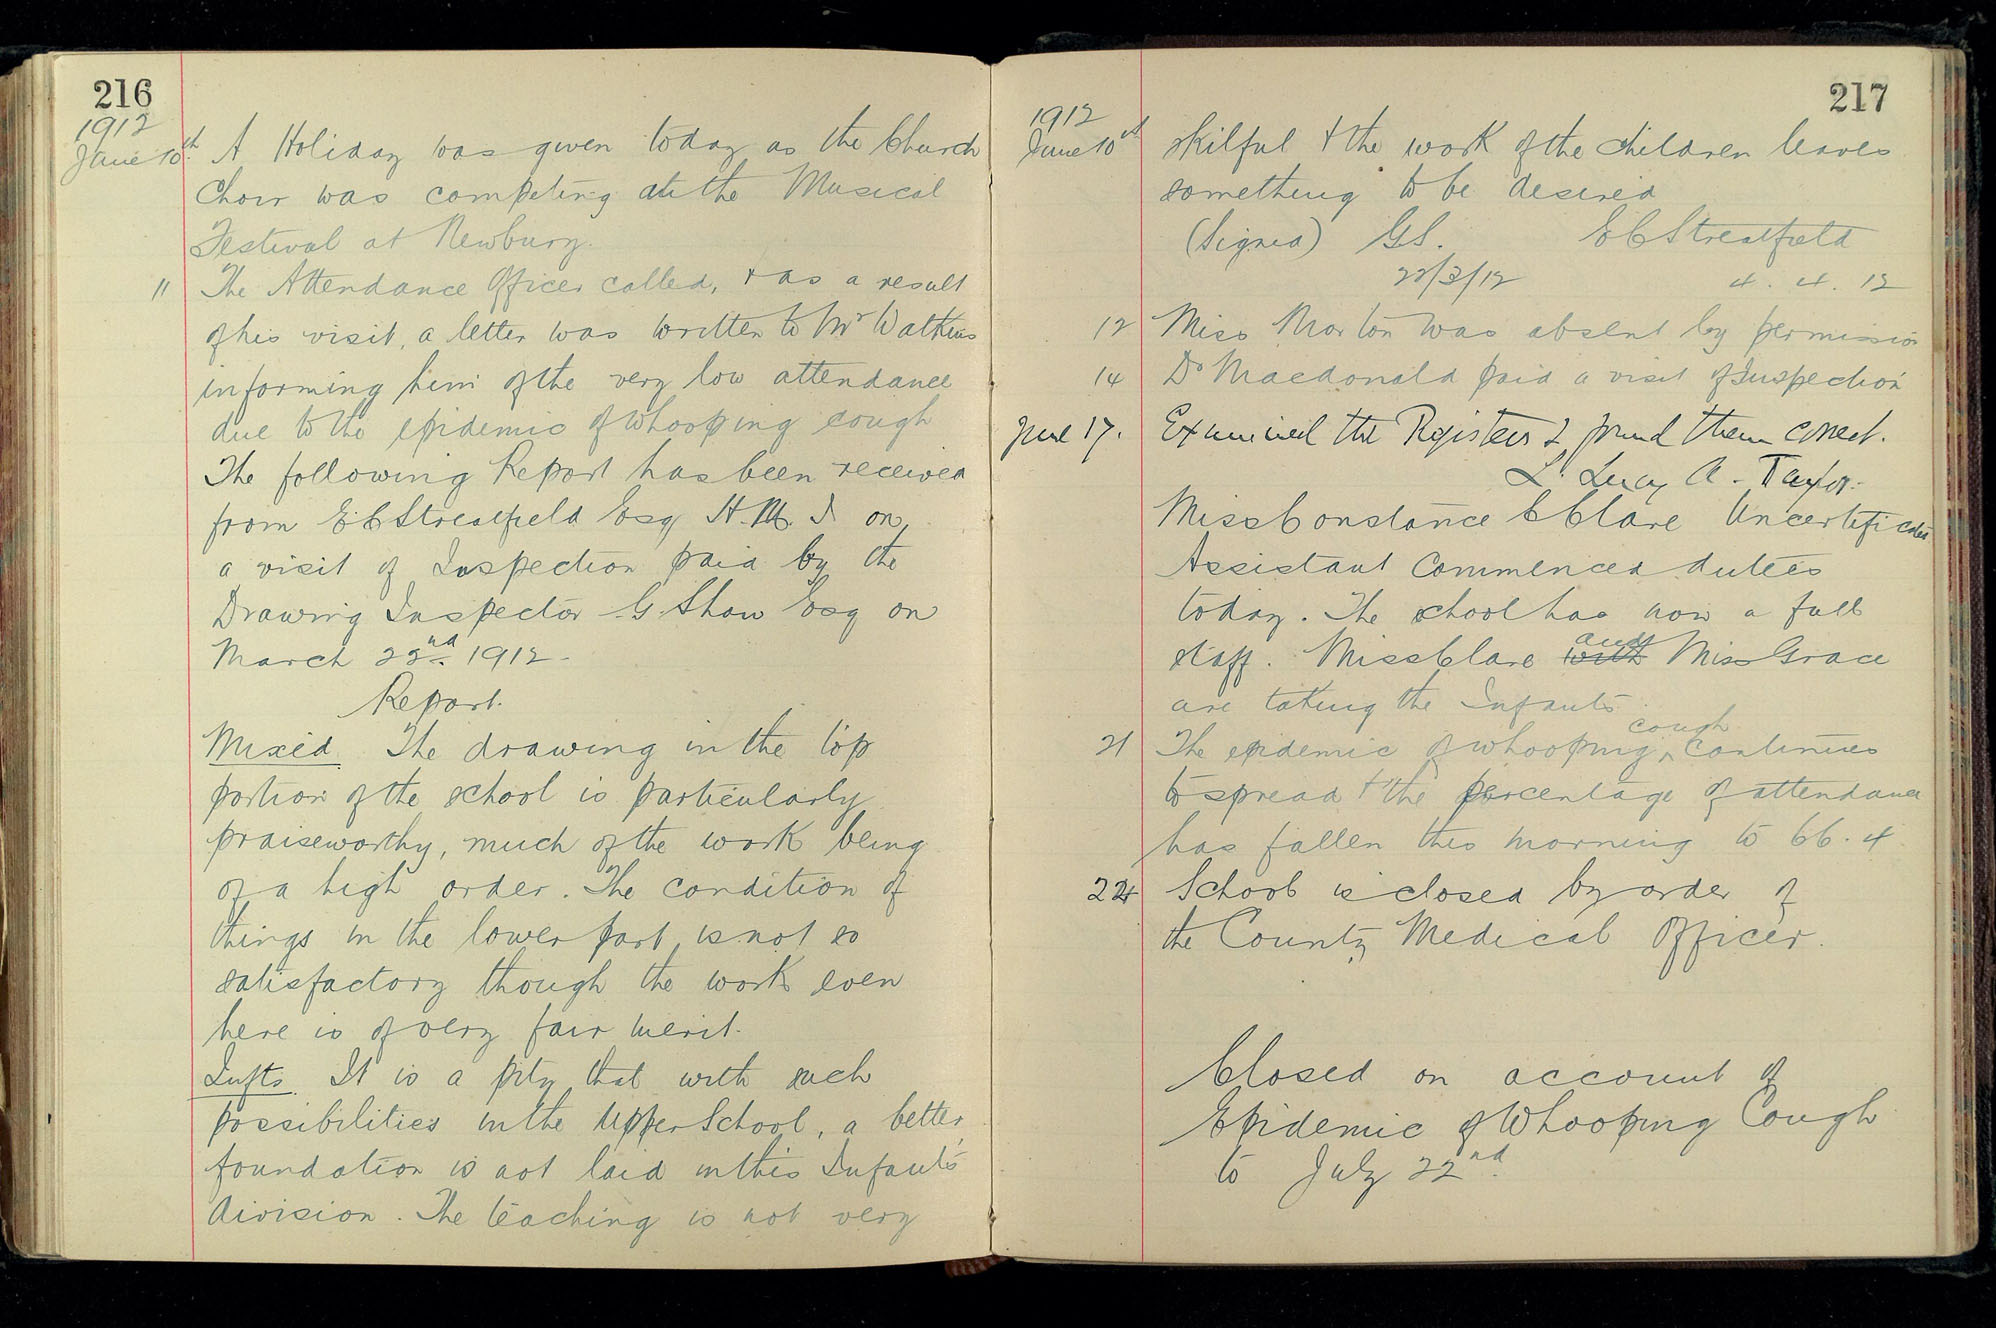 216
1912
June 10th A Holiday was given today as the Church
Choir was competing at the Musical
Festival at Newbury.
11 The Attendance Officer called, & as a result
of his visit, a letter was written to Mr Watkins
informing him of the very low attendance
due to the epidemic of whooping cough
The following Report has been received
from E C Streatfield Esq H.M.I on
a visit of Inspection paid by the
Drawing Inspector G Shaw Esq on
March 22nd. 1912.
Report.
Mixed. The drawing in the top
portion of the school is particularly
praiseworthy, much of the work being
of a high order. The condition of
things in the lower part is not so
satisfactory though the work even
here is of very fair merit.
Infts. It is a pity that with such
possibilities in the Upper School, a better
foundation is not laid in this Infants
division. The teaching is not very
217
1912
June 10th skilful & the work of the children leaves
something to be desired
(Signed) GS. E C Streatfield
22/3/12 4. 4. 12
12 Miss Morton was absent by permission
14 Dr Macdonald paid a visit of Inspection
June 17. Examined the Registers & found them correct.
L. Lucy A. Taylor.
Miss Constance C Clare Uncertificated
Assistant commenced duties
today. The school has now a full
staff. Miss Clare with and Miss Grace
are taking the Infants
21 The epidemic of whooping cough continues
to spread & the percentage of attendance
has fallen this morning to 66.4
24 School is closed by order of
the County Medical Officer.
Closed on account of
Epidemic of Whooping Cough
to July 22nd.